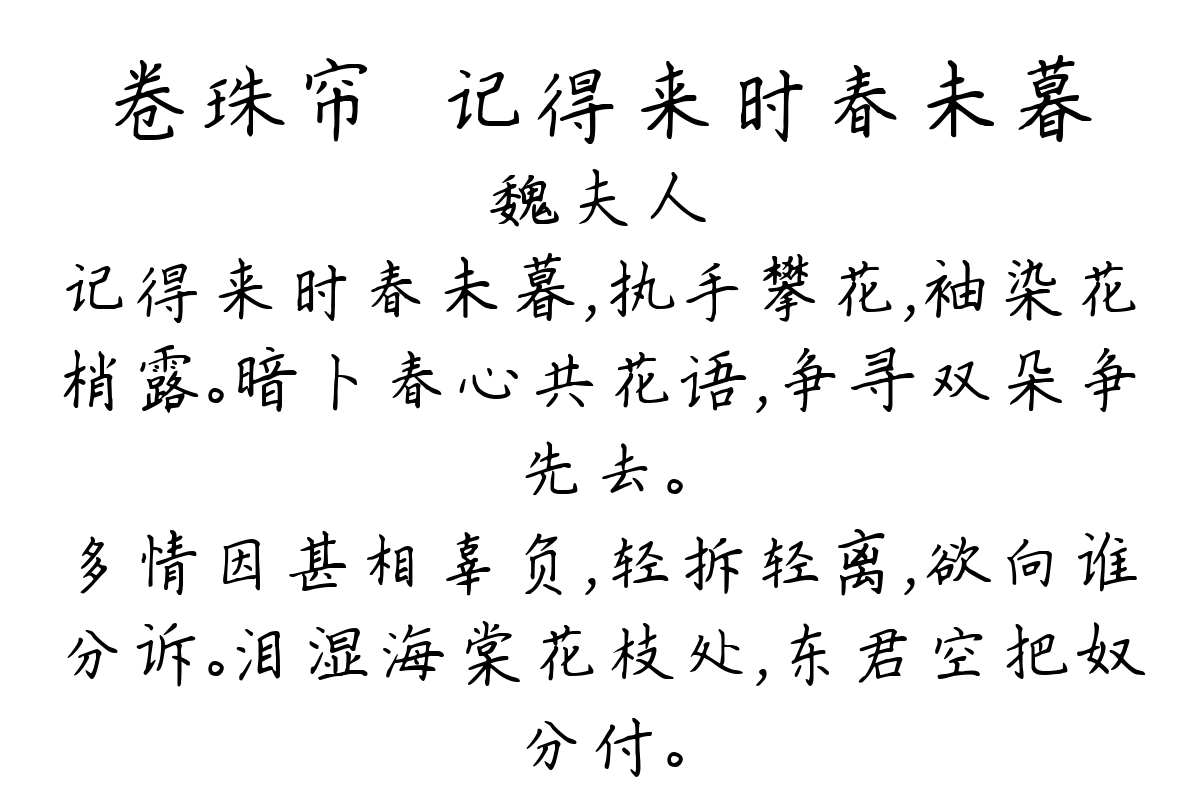 卷珠帘 记得来时春未暮
魏夫人
记得来时春未暮,执手攀花,袖染花
梢露。暗卜春心共花语,争寻双朵争
先去。
多情因甚相辜负,轻拆轻离,欲向谁
分诉。泪湿海棠花枝处,东君空把奴
分付。